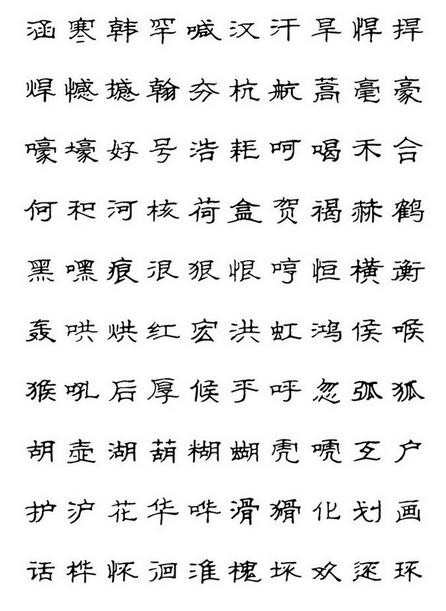 涵寒韩罕喊汉汗旱悍捍
焊憾撼翰夯杭航蒿毫豪
嚎壕好号浩耗呵喝禾合
何和河核荷盒贺褐赫鹤
黑嘿痕很狠恨哼恒横衡
轰哄烘红宏洪虹鸿侯喉
猴吼后厚候乎呼忽弧狐
胡壶湖葫糊蝴虎唬互户
护沪花华哗滑猾化划画
话桦怀徊淮槐坏欢还环